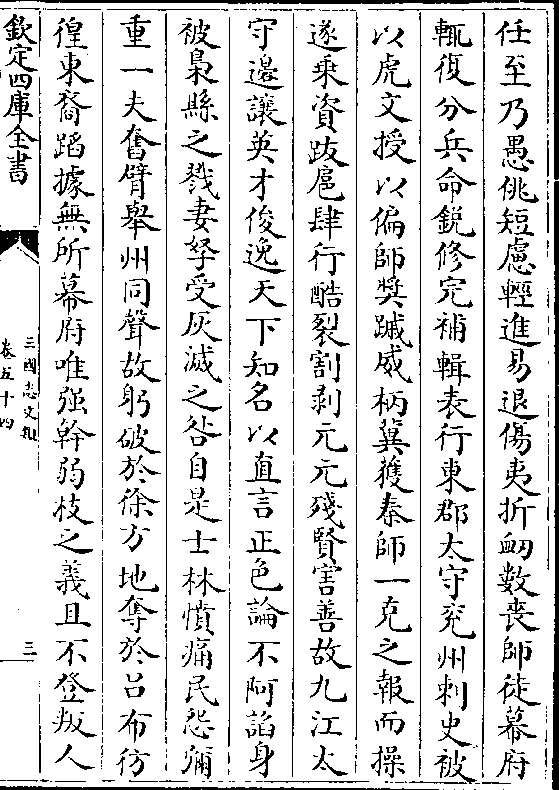 任至乃愚佻短慮輕進易退傷夷折衂數喪師徒幕府
輒復分兵命鋭修完補輯表行東郡太守兖州刺史被
以虎文授以偏師奬蹴威柄冀獲秦師一克之報而操
遂乗資跋扈肆行酷裂割剥元元殘賢害善故九江太
守邊讓英才俊逸天下知名以直言正色論不阿諂身
被梟縣之戮妻孥受灰滅之咎自是士林憤痛民怨彌
重一夫奮臂舉州同聲故躬破於徐方地奪於吕布彷
徨東裔蹈據無所幕府唯强幹弱枝之義且不登叛人
欽定四庫全書
三國志文類
卷五十四
三